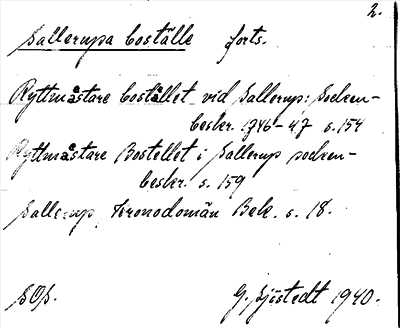 2.
Sallerupa boställe forts.
Ryttmästare bostället vid Sallerup: Socken-
beskr. 1746-47 s. 154
Ryttmästare Bostellet i Sallerup socken-
beskr. s. 159
Sallerup, Kronodomän Bek. s. 18.
SOS. G. Sjöstedt 1940.